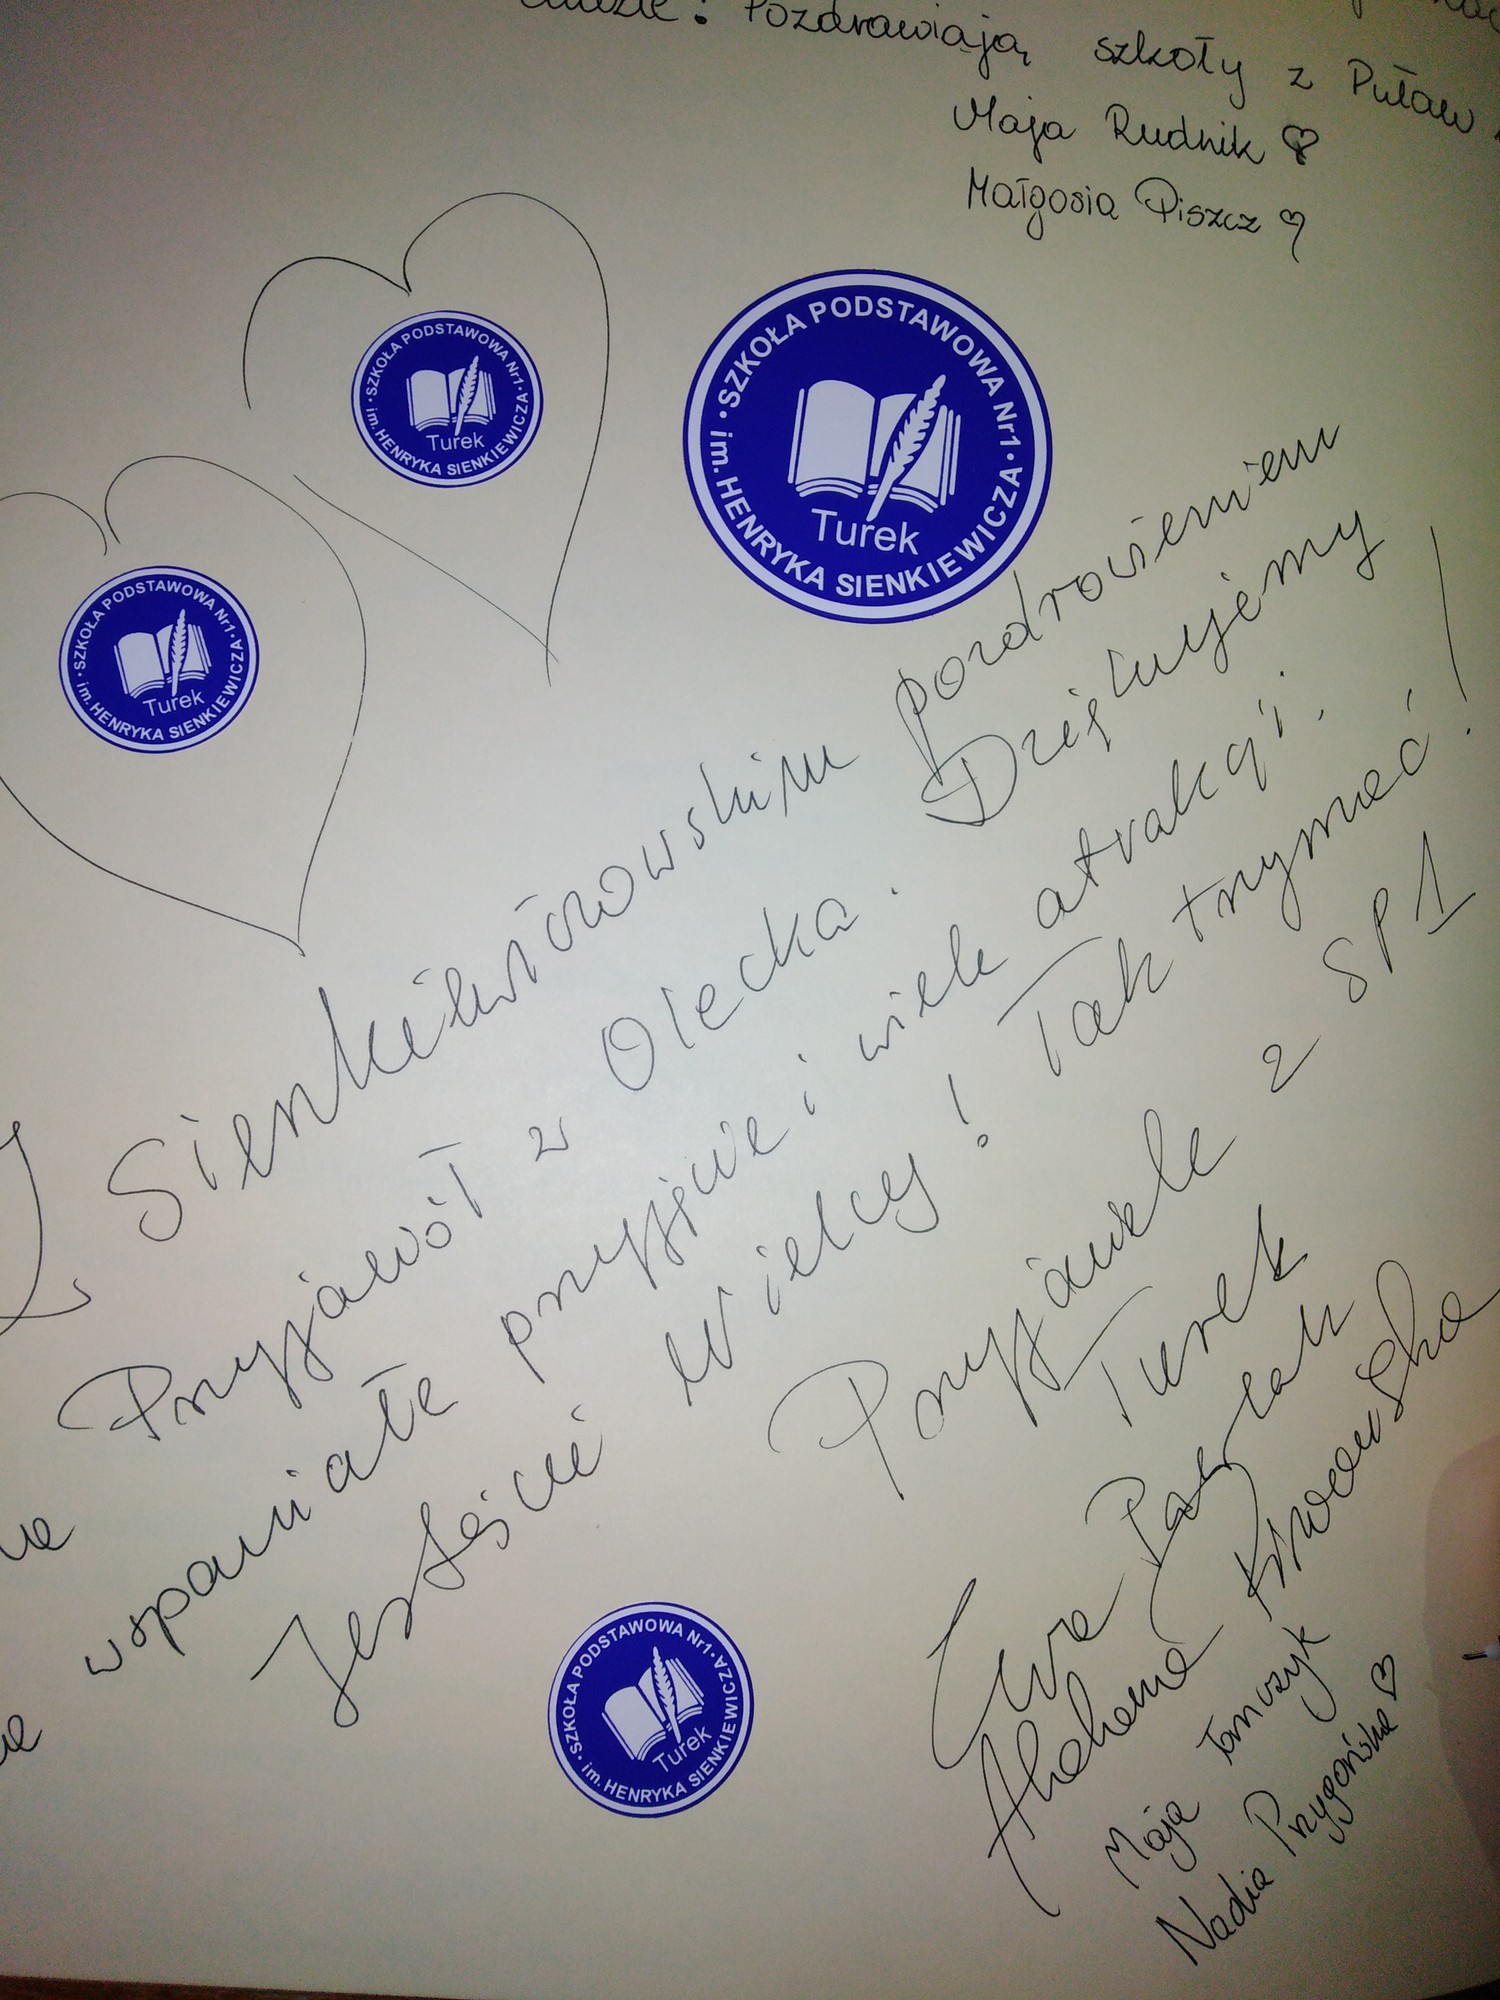 Pozdrawiają szkoły z Puław
Maja Rudnik
Małgosia Piszcz
SZKOŁA PODSTAWOWA Nr1
im. HENRYKA SIENKIEWICZA
Turek
SZKOŁA PODSTAWOWA Nr1
im. HENRYKA SIENKIEWICZA
Turek
SZKOŁA PODSTAWOWA Nr1
im. HENRYKA SIENKIEWICZA
Turek
Z Sienkiewiczowskim pozdrowieniem
Przyjaciół z Olecka. Dziękujemy
wspaniałe przyjęcie i wiele atrakcji.
Jesteście Wielcy! Tak trzymać!
Przyjaciele z SP 1
Turek
Ewa
Maja Tomczyk
Nadia Przygońska
SZKOŁA PODSTAWOWA Nr1
im. HENRYKA SIENKIEWICZA
Turek